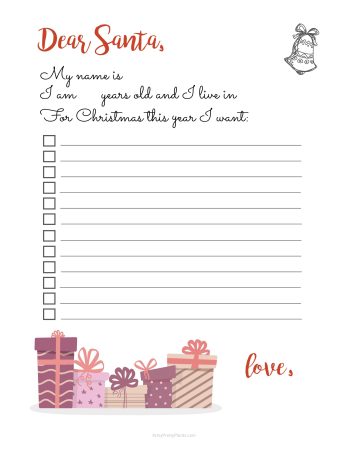 Dear Santa,
My name is
I am years old and I live in
For Christmas this year I want:
love,